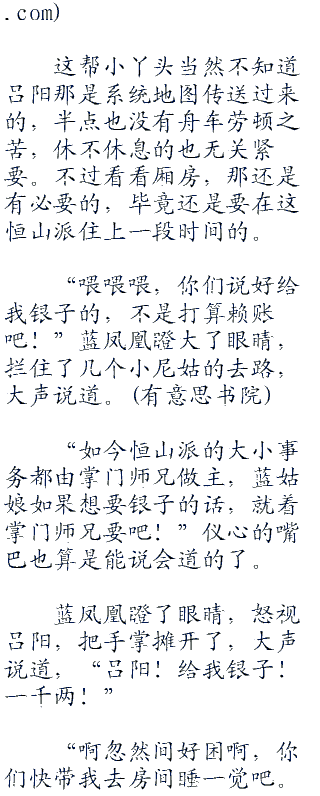 .com)
这帮小丫头当然不知道
吕阳那是系统地图传送过来
的，半点也没有舟车劳顿之
苦，休不休息的也无关紧
要。不过看看厢房，那还是
有必要的，毕竟还是要在这
恒山派住上一段时间的。
“喂喂喂，你们说好给
我银子的，不是打算赖账
吧！”蓝凤凰澄大了眼睛，
拦住了几个小尼姑的去路，
大声说道。(有意思书院)
“如今恒山派的大小事
务都由掌门师兄做主，蓝姑
娘如果想要银子的话，就着
掌门师兄要吧！”仪心的嘴
巴也算是能说会道的了。
蓝凤凰澄了眼睛，怒视
吕阳，把手掌摊开了，大声
说道，“吕阳！给我银子！
一千两！”
“啊忽然间好困啊，你
们快带我去房间睡一觉吧。